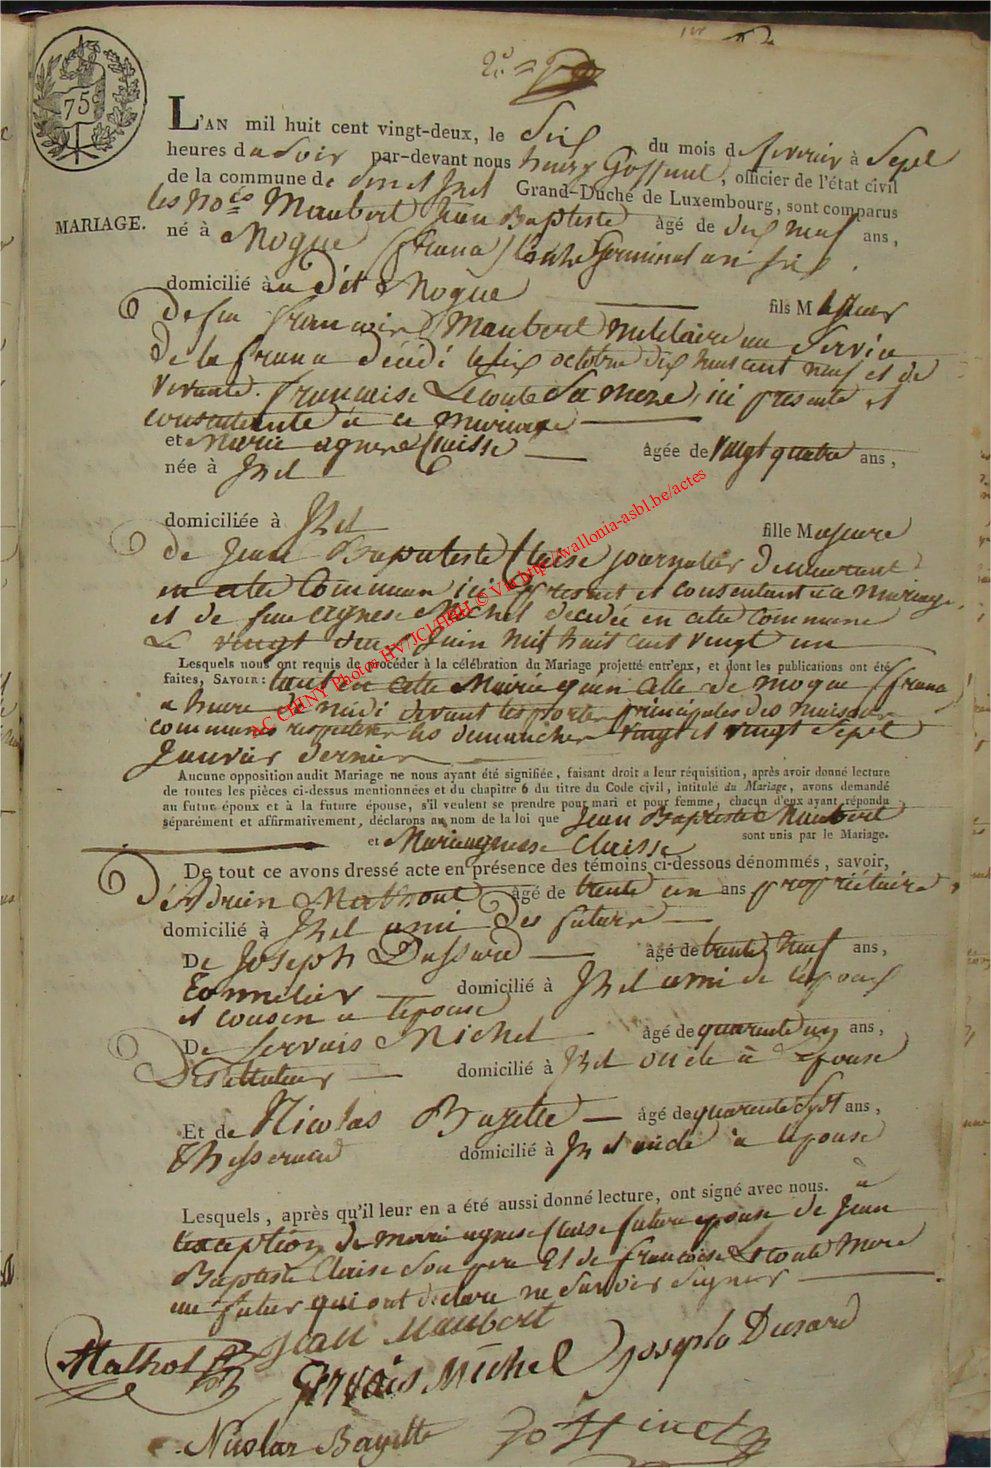 75
L'AN mil huit cent vingt-deux, le Six du mois de fevrier à Sept
heures du Soir par-devant nous henry Gossinet, officier de l'état civil
de la commune de Grand-Duché de Luxembourg, sont comparus
les No Maubert Jean Baptiste âgé de dix neuf ans,
MARIAGE.
né à Mogue (france) Germinal an
domicilié au dit Mogue fils Mineur
De feu francois Maubert militaire au Service
de la france décédé le six octobre dix huit cent neuf et de
vivante francoise Lecoute Sa mere, ici presente et
consentante a ce mariage
et Marie agnese Claisse âgée de vingt quatre ans,
née à Izel
domiciliée à Izel fille Majeure
de Jean Baptiste Claise journalier demeurant
en cette Commune ici present et consentant a ce mariage
et de feue agnese Michel décedée en cette commune
Le vingt deux Juin mil huit cent vingt un
Lesquels nous ont requis de procéder à la célébration du Mariage projetté entr'eux, et dont les publications ont été
faites, SAVOIR: tant en cette Mairie qu'en celle de mogue (france)
a heure de midi devant les portes principales des maisons
communes respectives les dimanches vingt et vingt Sept
Janvier dernier
Aucune opposition audit Mariage ne nous ayant été signifiée, faisant droit a leur réquisition, après avoir donné lecture
de toutes les pièces ci-dessus mentionnées et du chapitre 6 du titre du Code civil, intitulé du Mariage, avons demandé
au futur époux et à la future épouse, s'il veulent se prendre pour mari et pour femme, chacun d'eux ayant répondu
séparément et affirmativement, déclarons au nom de la loi que Jean Baptiste Maubert
et Marieagnese Claisse sont unis par le Mariage.
De tout ce avons dressé acte en présence des témoins ci-dessous dénommés, savoir,
D'Adrien Mathout âgé de trente un ans propriétaire,
domicilié à Izel ami des futurs
De Joseph Dussard âgé de trente neuf ans,
Tonnelier domicilié à Izel ami de l'epoux
et cousin a l'epouse
De Servais Michel âgé de quarante un ans,
Distillateur domicilié à Izel oncle à l'epouse
Et de Nicolas Bayette âgé de quarante Sept ans,
Thisserand domicilié à Izel oncle à l'epouse
Lesquels, après qu'il leur en a été aussi donné lecture, ont signé avec nous. à
l'exception de marie agnes Claise future epouse de Jean
Baptiste Claise Son pere Et de francoise Lecoute Mere
au futur qui ont declaré ne Savoir Signer
Mathot Jean Maubert
Servais Michel Joseph Dusard
Nicolas Bayette Gossinet
AC CHINY Photos HV/JCL/HRH © Via http://wallonia-asbl.be/actes